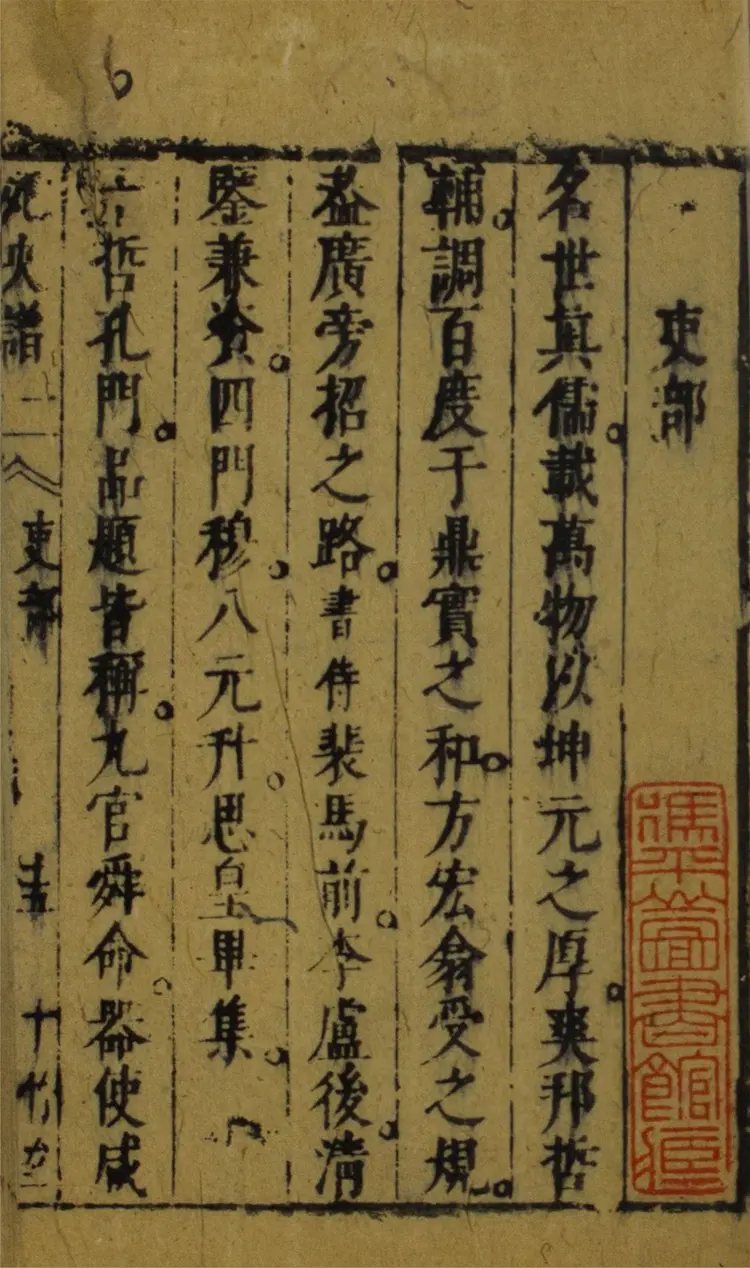 吏部
馮平山圖書館
名世真儒載萬物以坤元之厚爽邦哲
輔調百度于鼎實之和方宏翕受之規
益廣旁招之路書侍裴馬前李盧後清
鑒兼資四門穆八元升思皇畢集
哲孔門品題皆稱九官舜命器使咸
央譜 二 吏部 十竹